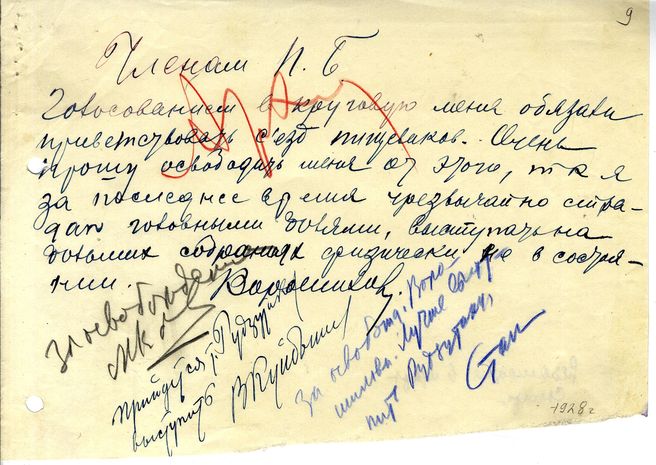 9
Членам П.Б
Голосованием в круговую меня обязали
приветствовать с'езд пищевиков. Очень
прошу освободить меня от этого, т к я
за последнее время чрезвычайно стра-
даю головными болями, выступать на
больших собраниях физически не в состоя-
нии. Ворошилов.
За освобождение
МК
Придется т. Рудзутаку
выступить
В Куйбышев
За освобожд. Воро-
шилова. Лучше
Рудзутака,
Стал
1928 г